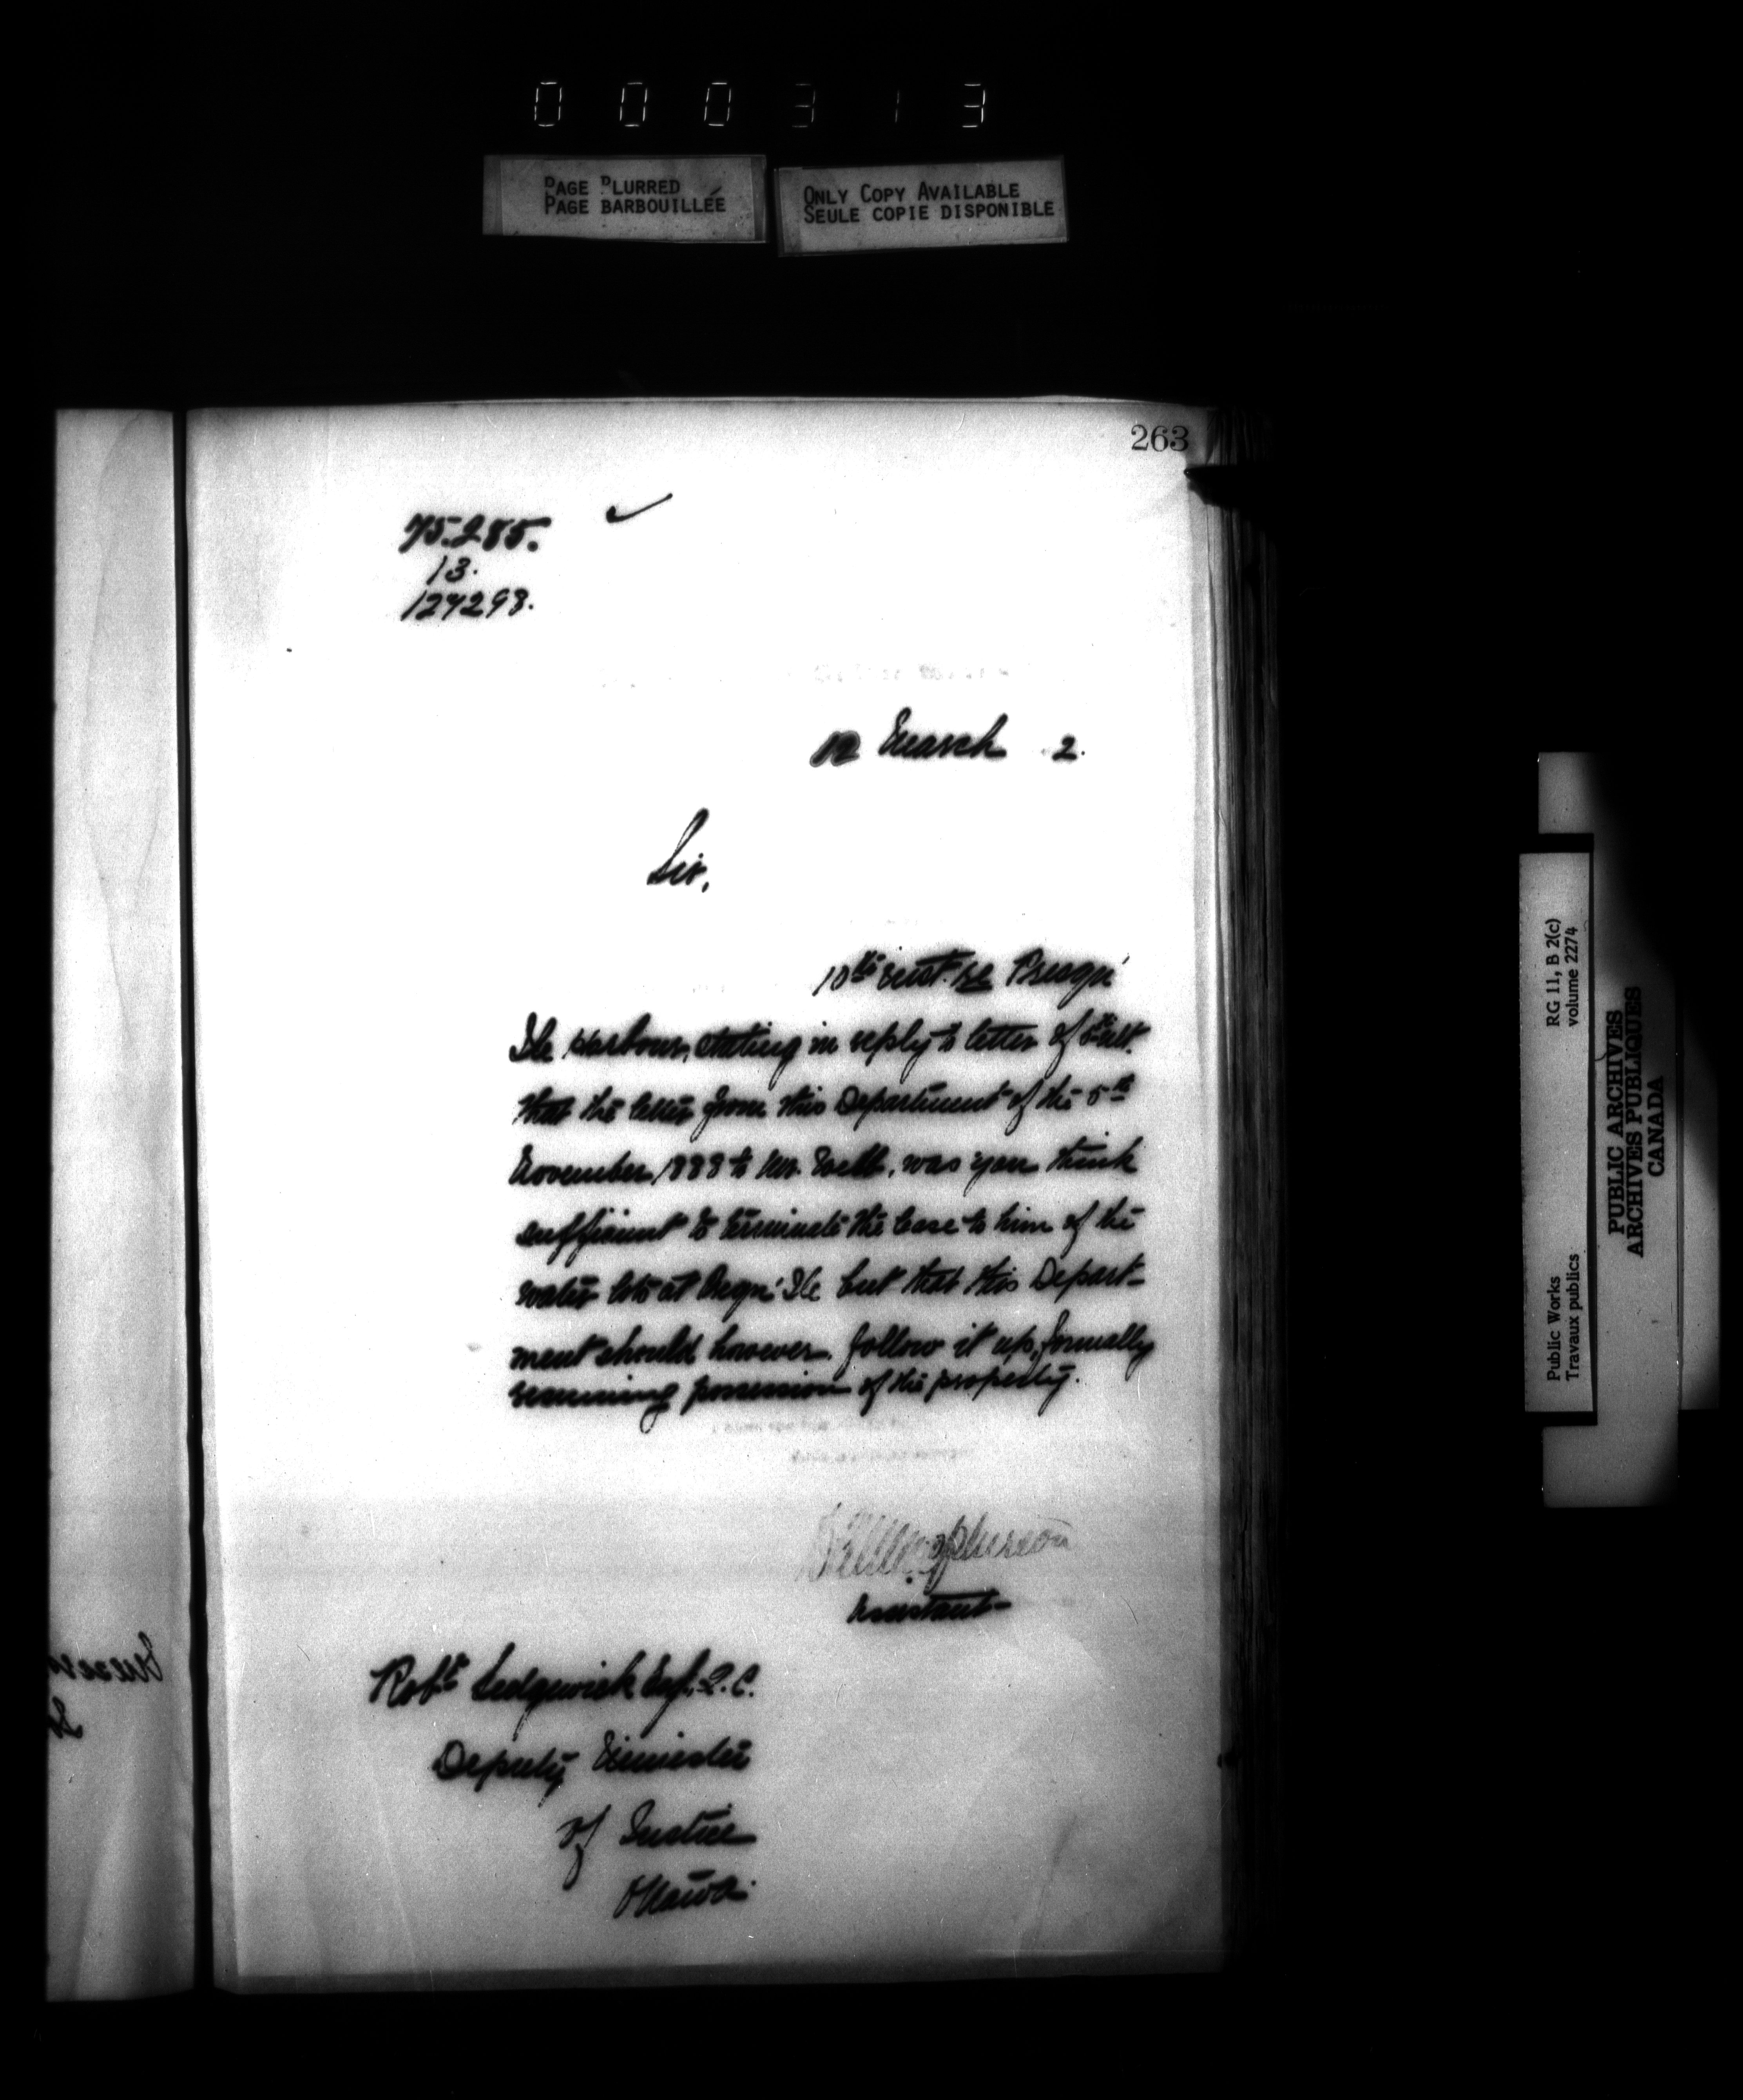 000313
PAGE BLURRED
PAGE BARBOUILLÉE
ONLY COPY AVAILABLE
SEULE COPIE DISPONIBLE
263
75.285.
13.
127298.
12 March 2.
Sir,
10th inst. re Presqu'
Ile Harbour, stating in reply to letter of ult.
that the letter from this Department of the 5th
November 1888 to Mr. was you think
sufficient to terminate the lease to him of the
water lots at Presqu' Ile but that this Depart-
ment should however follow it up, formally
resuming possession of the property.
Assistant
Robt Sedgewick Esq. Q.C.
Deputy Minister
of Justice
Ottawa.
Public Works
Travaux publics
RG 11, B 2(c)
volume 2274
PUBLIC ARCHIVES
ARCHIVES PUBLIQUES
CANADA